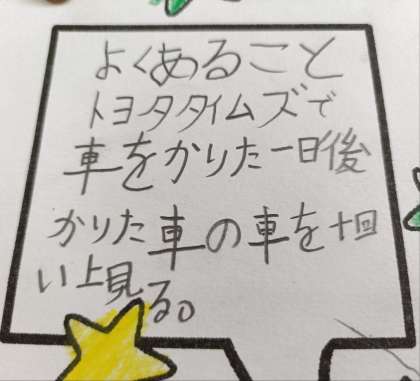 よくあること
トヨタタイムズで
車をかりた一日後
かりた車の車を十回
い上見る。